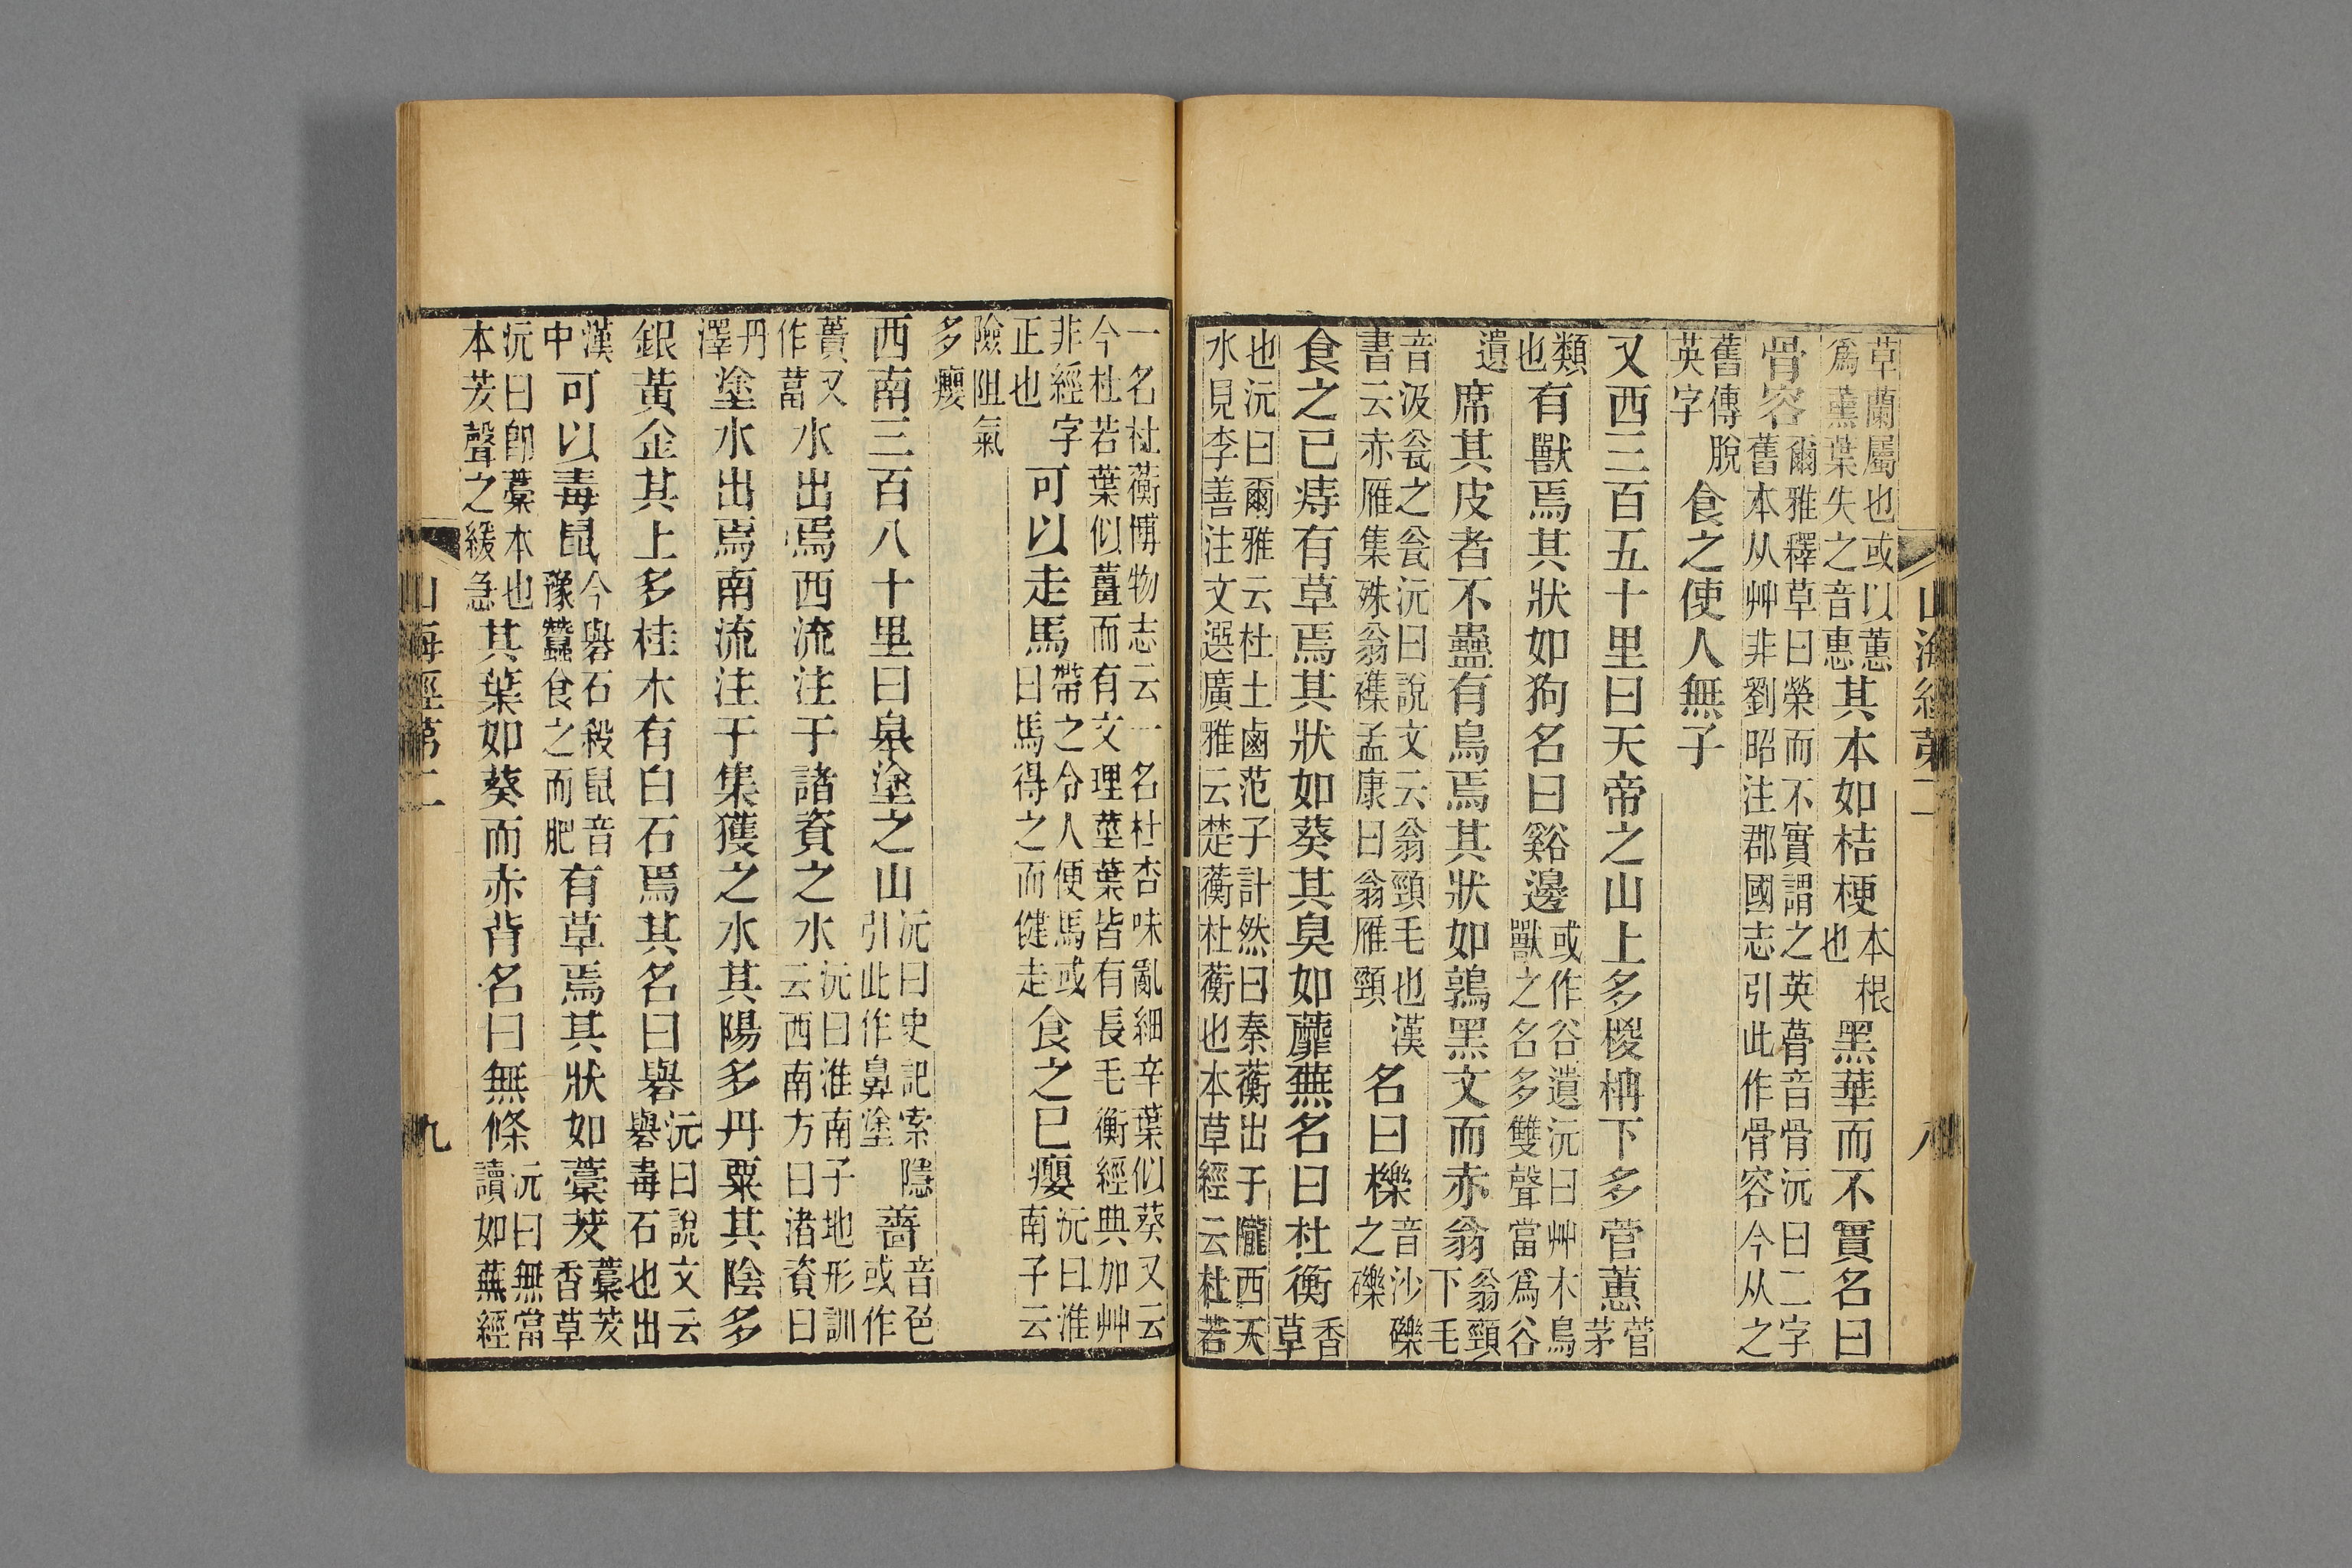 山海經第二　八
草蘭屬也或以蕙
為薰葉失之音惠
其本如桔梗
本根
也
黑華而不實名曰
骨容
爾雅釋草曰榮而不實謂之英蓇音骨沅曰二字
舊本从艸非劉昭注郡國志引此作骨容今从之
舊傳脫
英字
食之使人無子
又西三百五十里曰天帝之山上多椶枏下多菅蕙
菅
茅
類
也
有獸焉其狀如狗名曰谿邊
或作谷遺沅曰艸木鳥
獸之名多雙聲當爲谷
遺
席其皮者不蠱有鳥焉其狀如鶉黑文而赤翁
翁頸
下毛
音汲瓮之瓮沅曰說文云翁頸毛也漢
書云赤雁集殊翁襍孟康曰翁雁頸
名曰櫟
音沙礫
之礫
食之已痔有草焉其狀如葵其臭如蘼蕪名曰杜衡
香
草
也沅曰爾雅云杜土鹵范子計然曰秦蘅出于隴西天
水見李善注文選廣雅云楚蘅杜蘅也本草經云杜若
一名杜蘅博物志云一名杜杏味亂細辛葉似葵又云
今杜若葉似薑而有文理莖葉皆有長毛衡經典加艸
非經字
正也
可以走馬
帶之令人便馬或
曰馬得之而健走
食之已癭
沅曰淮
南子云
險阻氣
多癭
西南三百八十里曰皋塗之山
沅曰史記索隱
引此作鼻塗
薔
音色
或作
蕢又
作葍
水出焉西流注于諸資之水
沅曰淮南子地形訓
云西南方曰渚資曰
丹
澤
塗水出焉南流注于集獲之水其陽多丹粟其陰多
銀黃金其上多桂木有白石焉其名曰礜
沅曰說文云
礜毒石也出
漢
中
可以毒鼠
今礜石殺鼠音
豫蠶食之而肥
有草焉其狀如藁茇
藁茇
香草
沅曰卽藁本也
本茇聲之緩急
其葉如葵而赤背名曰無條
沅曰無當
讀如蕪經
山海經第二　九